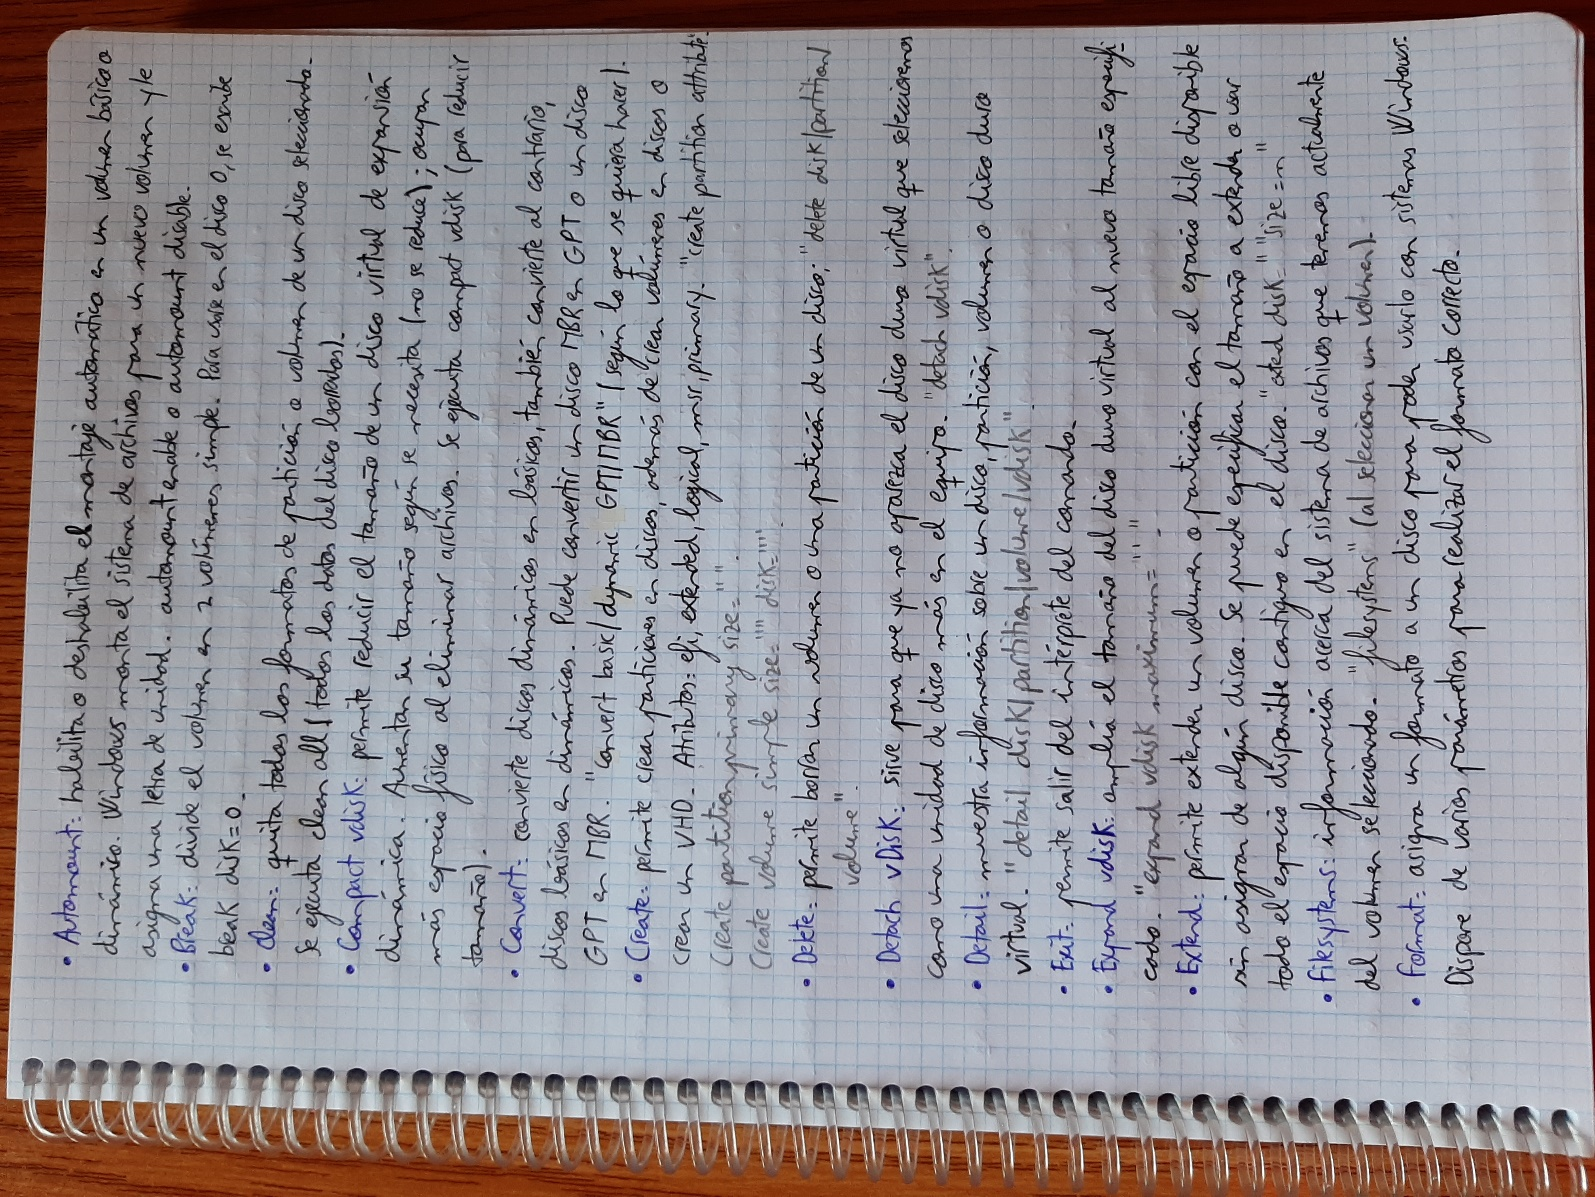 • Automount: habilita o deshabilita el montaje automático en un volumen básico o
dinámico. Windows monta el sistema de archivos para un nuevo volumen y le
asigna una letra de unidad. automount enable o automount disable.
• Break: divide el volumen en 2 volúmenes simple. Para usar en el disco 0, se ejecuta
break disk=0.
• Clean: quita todos los formatos de partición o volumen de un disco seleccionado.
Se ejecuta clean all (todos los datos del disco borrados).
• Compact vdisk: permite reducir el tamaño de un disco virtual de expansión
dinámica. Aumentan su tamaño según se necesita (no se reduce); ocupan
más espacio físico al eliminar archivos. Se ejecuta compact vdisk (para reducir
tamaño).
• Convert: convierte discos dinámicos en básicos, también convierte al contrario,
discos básicos en dinámicos. Puede convertir un disco MBR en GPT o un disco
GPT en MBR. "convert basic/dynamic GPT/MBR" (según lo que se quiera hacer).
• Create: permite crear particiones en discos, además de crear volúmenes en discos o
crear un VHD. Atributos: efi, extended, logical, msr, primary. "create partition attribute"
Create partition primary size=" ".
Create volume simple size=" " disk=" "
• Delete: permite borrar un volumen o una partición de un disco: "delete disk/partition/
volume".
• Detach vDisk: sirve para que ya no aparezca el disco duro virtual que seleccionemos
como una unidad de disco más en el equipo. "detach vdisk"
• Detail: muestra información sobre un disco, partición, volumen o disco duro
virtual. "detail disk/partition/volume/vdisk".
• Exit: permite salir del intérprete del comando.
• Expand vdisk: amplía el tamaño del disco duro virtual al nuevo tamaño especifi-
cado. "expand vdisk maximum=" " "
• Extend: permite extender un volumen o partición con el espacio libre disponible
sin asignar de algún disco. Se puede especificar el tamaño a extender o usar
todo el espacio disponible contiguo en el disco. "extend disk " "size=n"
• Filesystems: información acerca del sistema de archivos que tenemos actualmente
del volumen seleccionado. "filesystems" (al seleccionar un volumen).
• Format: asigna un formato a un disco para poder usarlo con sistemas Windows.
Dispone de varios parámetros para realizar el formato correcto.